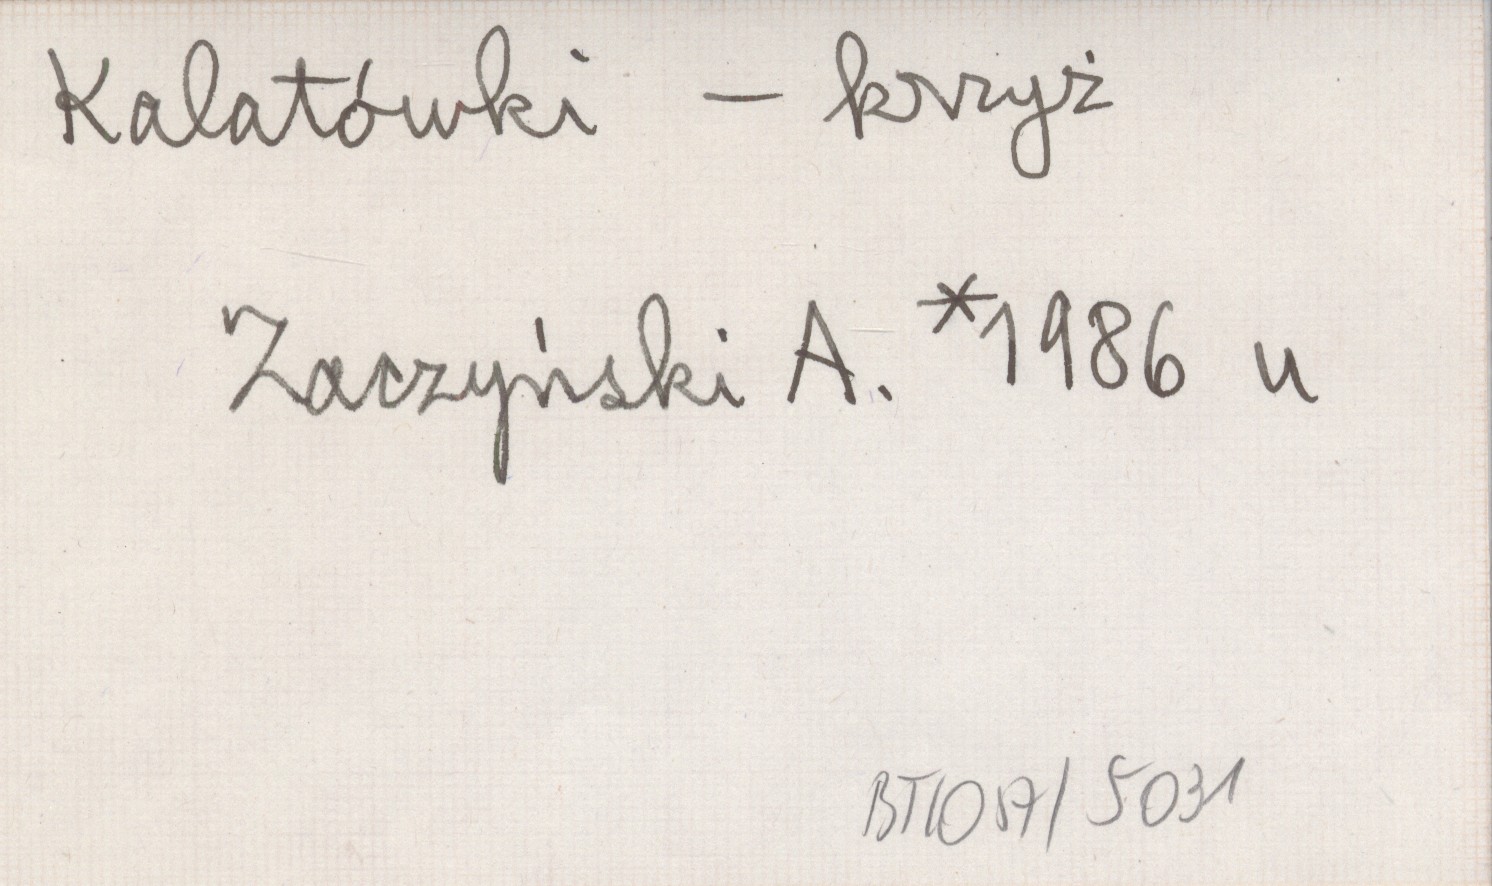 Kalatówki — krzyż
Zaczyński A. *1986 u
5031